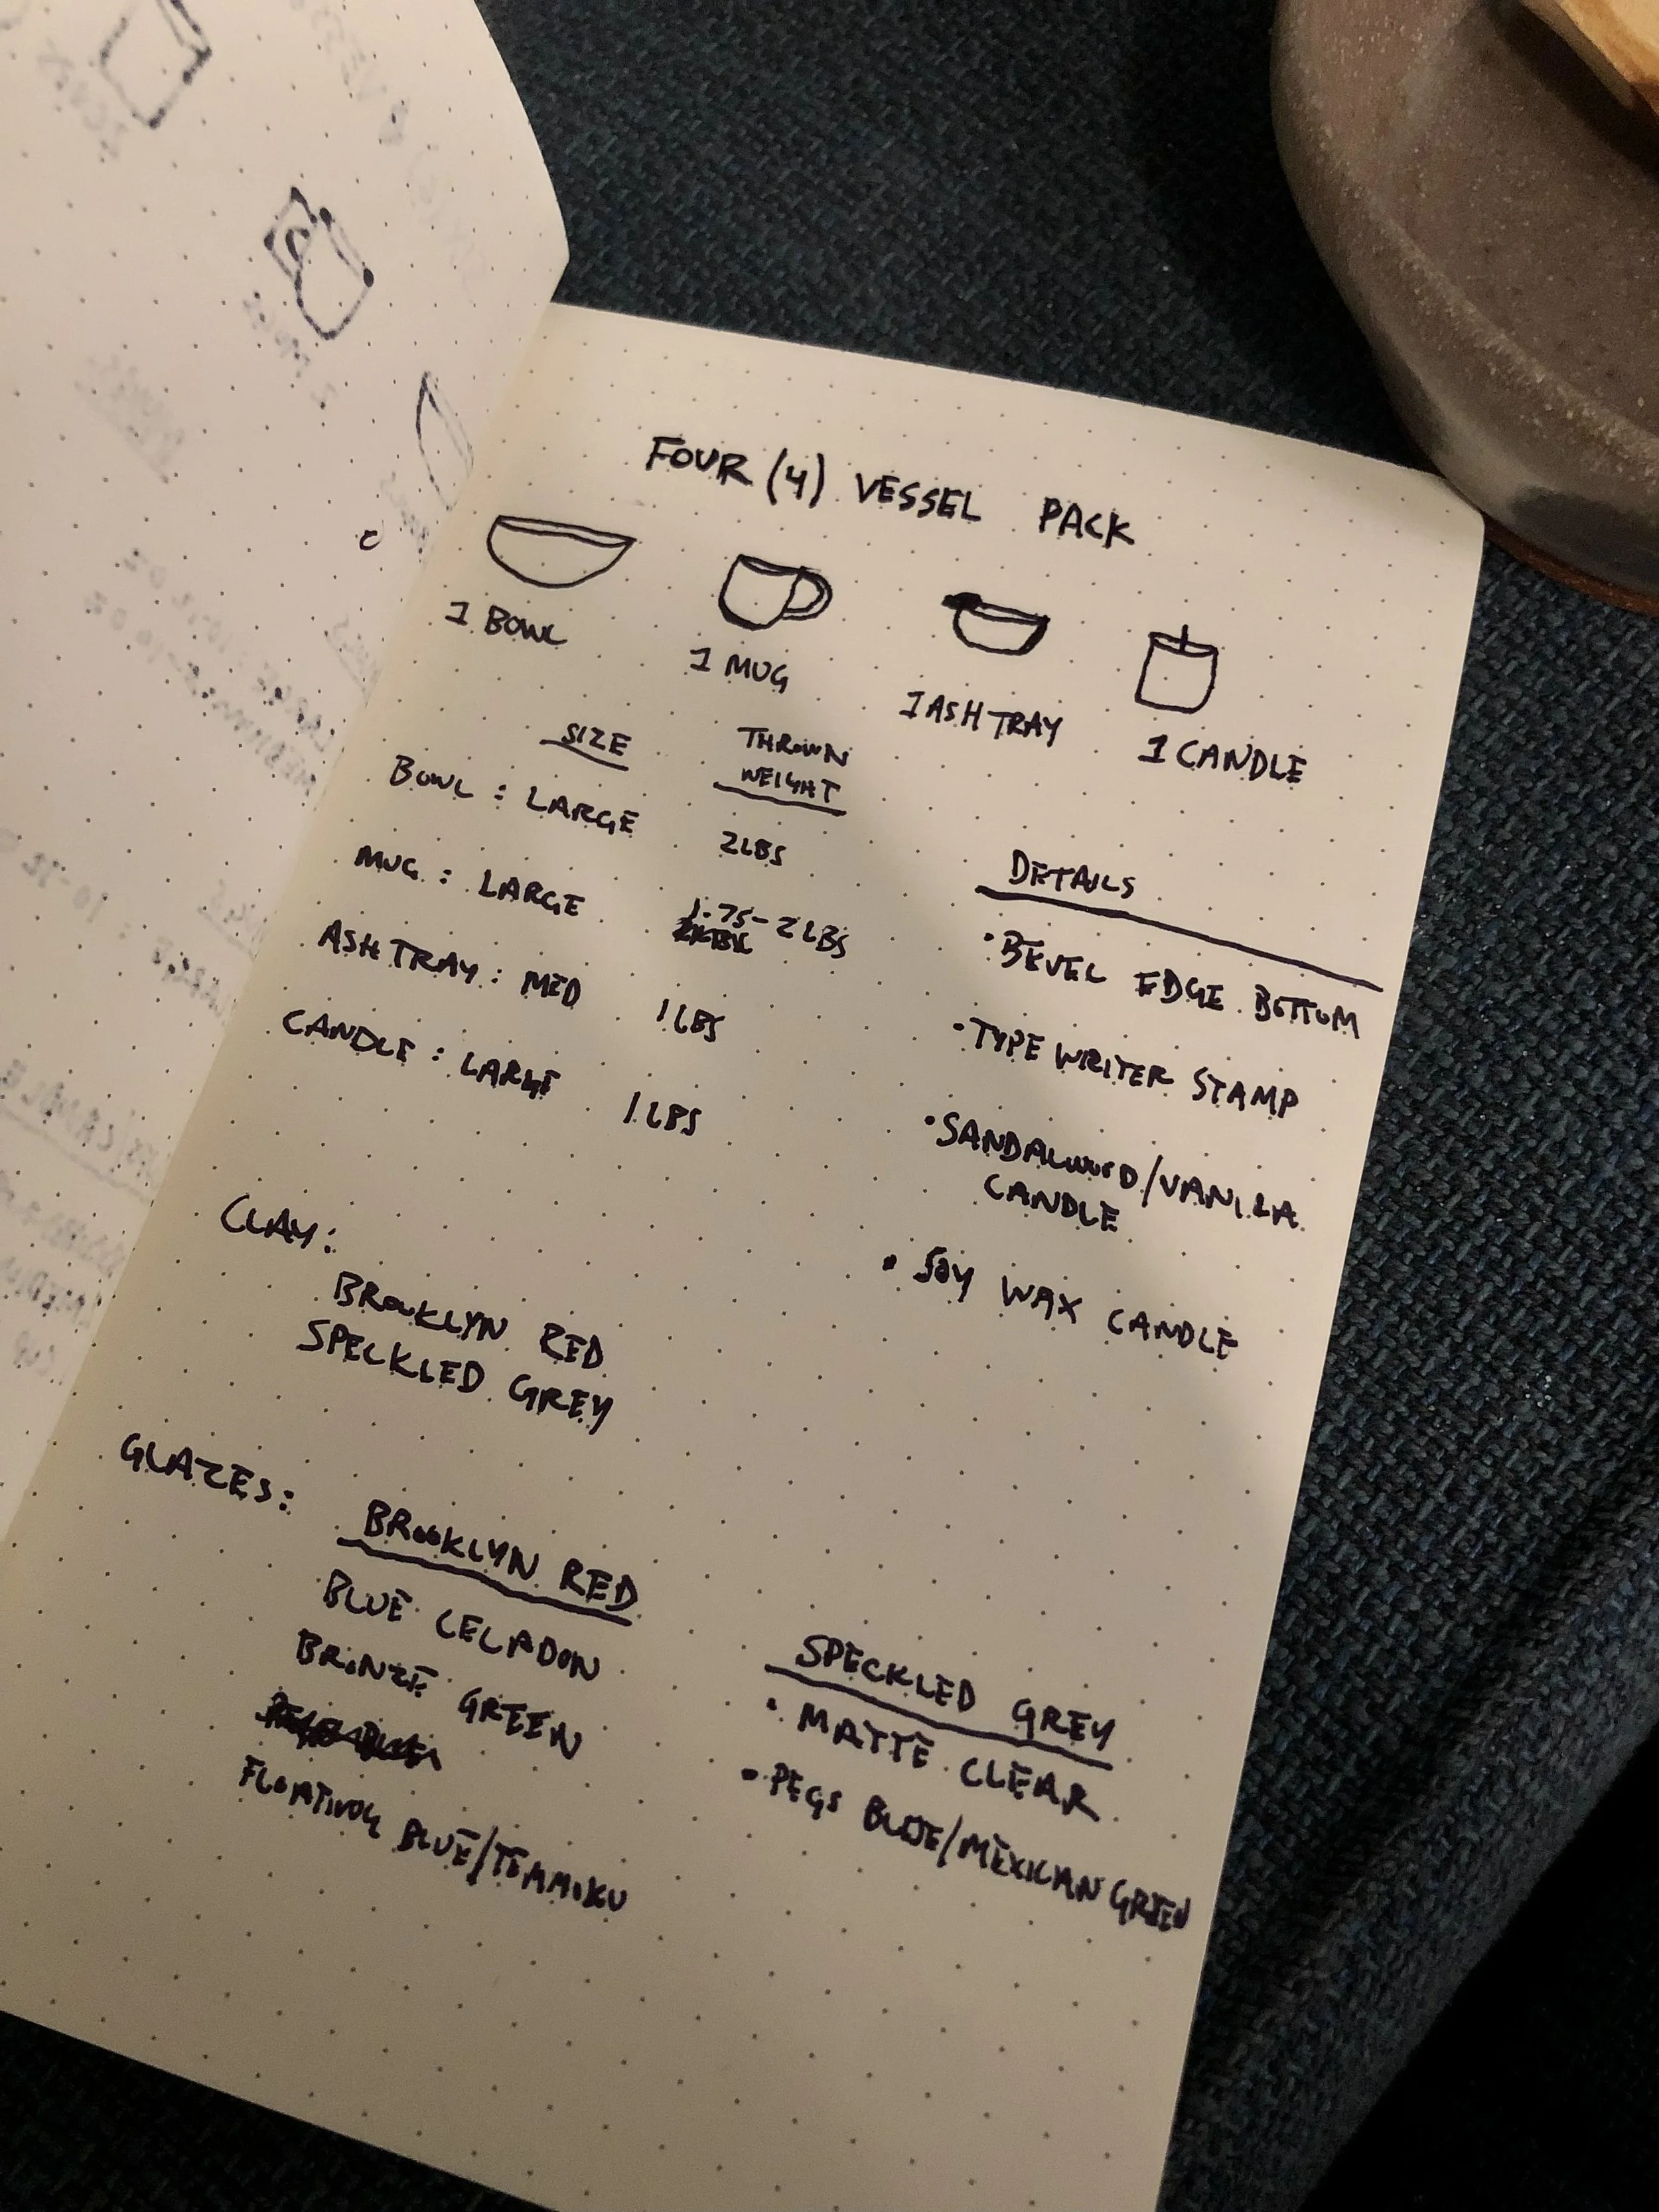 FOUR (4) VESSEL PACK
1 BOWL
1 MUG
1 ASH TRAY
1 CANDLE
SIZE
THROWN
WEIGHT
BOWL : LARGE 2LBS
MUG : LARGE 1.75-2LBS
ASH TRAY : MED 1LBS
CANDLE : LARGE 1LBS
DETAILS
• BEVEL EDGE BOTTOM
• TYPE WRITER STAMP
• SANDALWOOD/VANILLA
CANDLE
• SOY WAX CANDLE
CLAY:
BROOKLYN RED
SPECKLED GREY
GLAZES:
BROOKLYN RED
BLUE CELADON
BRONZE GREEN
FLOATING BLUE/TEMMOKU
SPECKLED GREY
• MATTE CLEAR
• PEGS BLUE/MEXICAN GREEN